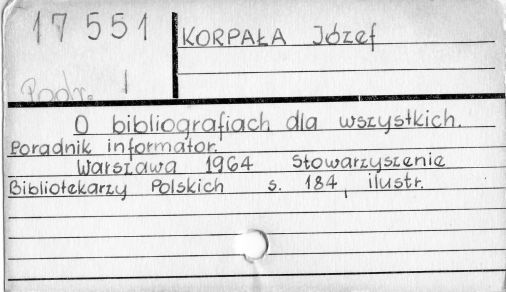 17 551
KORPAŁA Józef
Podr. 1
O bibliografiach dla wszystkich.
Poradnik informator.
Warszawa 1964 Stowarzyszenie
Bibliotekarzy Polskich s. 184, ilustr.